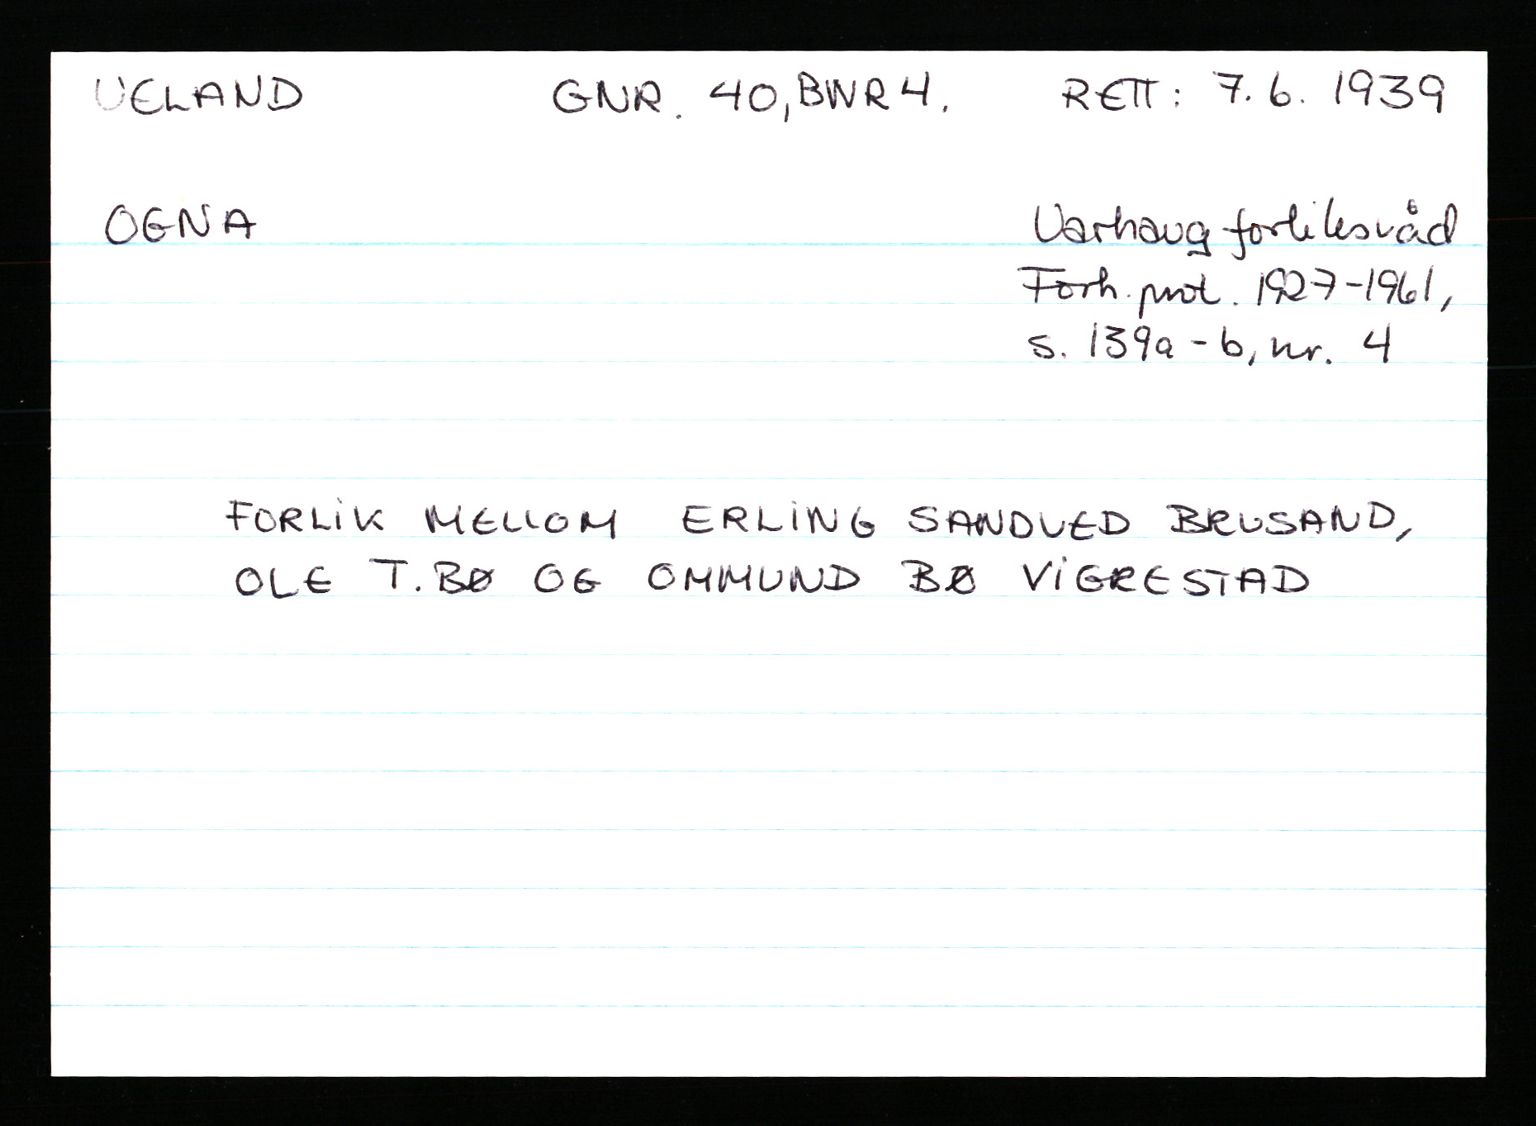 UELAND GNR. 40, BNR 4. RETT: 7.6. 1939
OGNA Varhaug forliksråd
Forh. prot. 1927-1961,
s. 139a - b, nr. 4
FORLIK MELLOM ERLING SANDVED BRUSAND,
OLE T. BØ OG OMMUND BØ VIGRESTAD